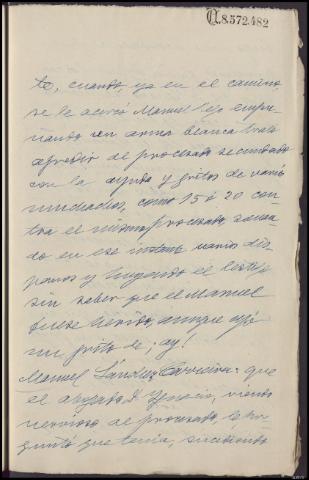 C.8.572.482
to, cuando, ya en el camino
se le acercó Manuel Rejo empu-
ñando un arma blanca trató
agredir al procesado secundado
con la ayuda y gritos de varios
muchachos, como 15 ó 20 con-
tra el mismo procesado, sonan-
do en ese instante varios dis-
paros y huyendo el testigo
sin saber que el Manuel
fuese herido, aunque oyó
un grito de ¡ay!
Manuel Sández Carreira: que
el abogado D. Ignacio, viendo
nervioso al procesado, le pre-
guntó que tenía, diciéndole